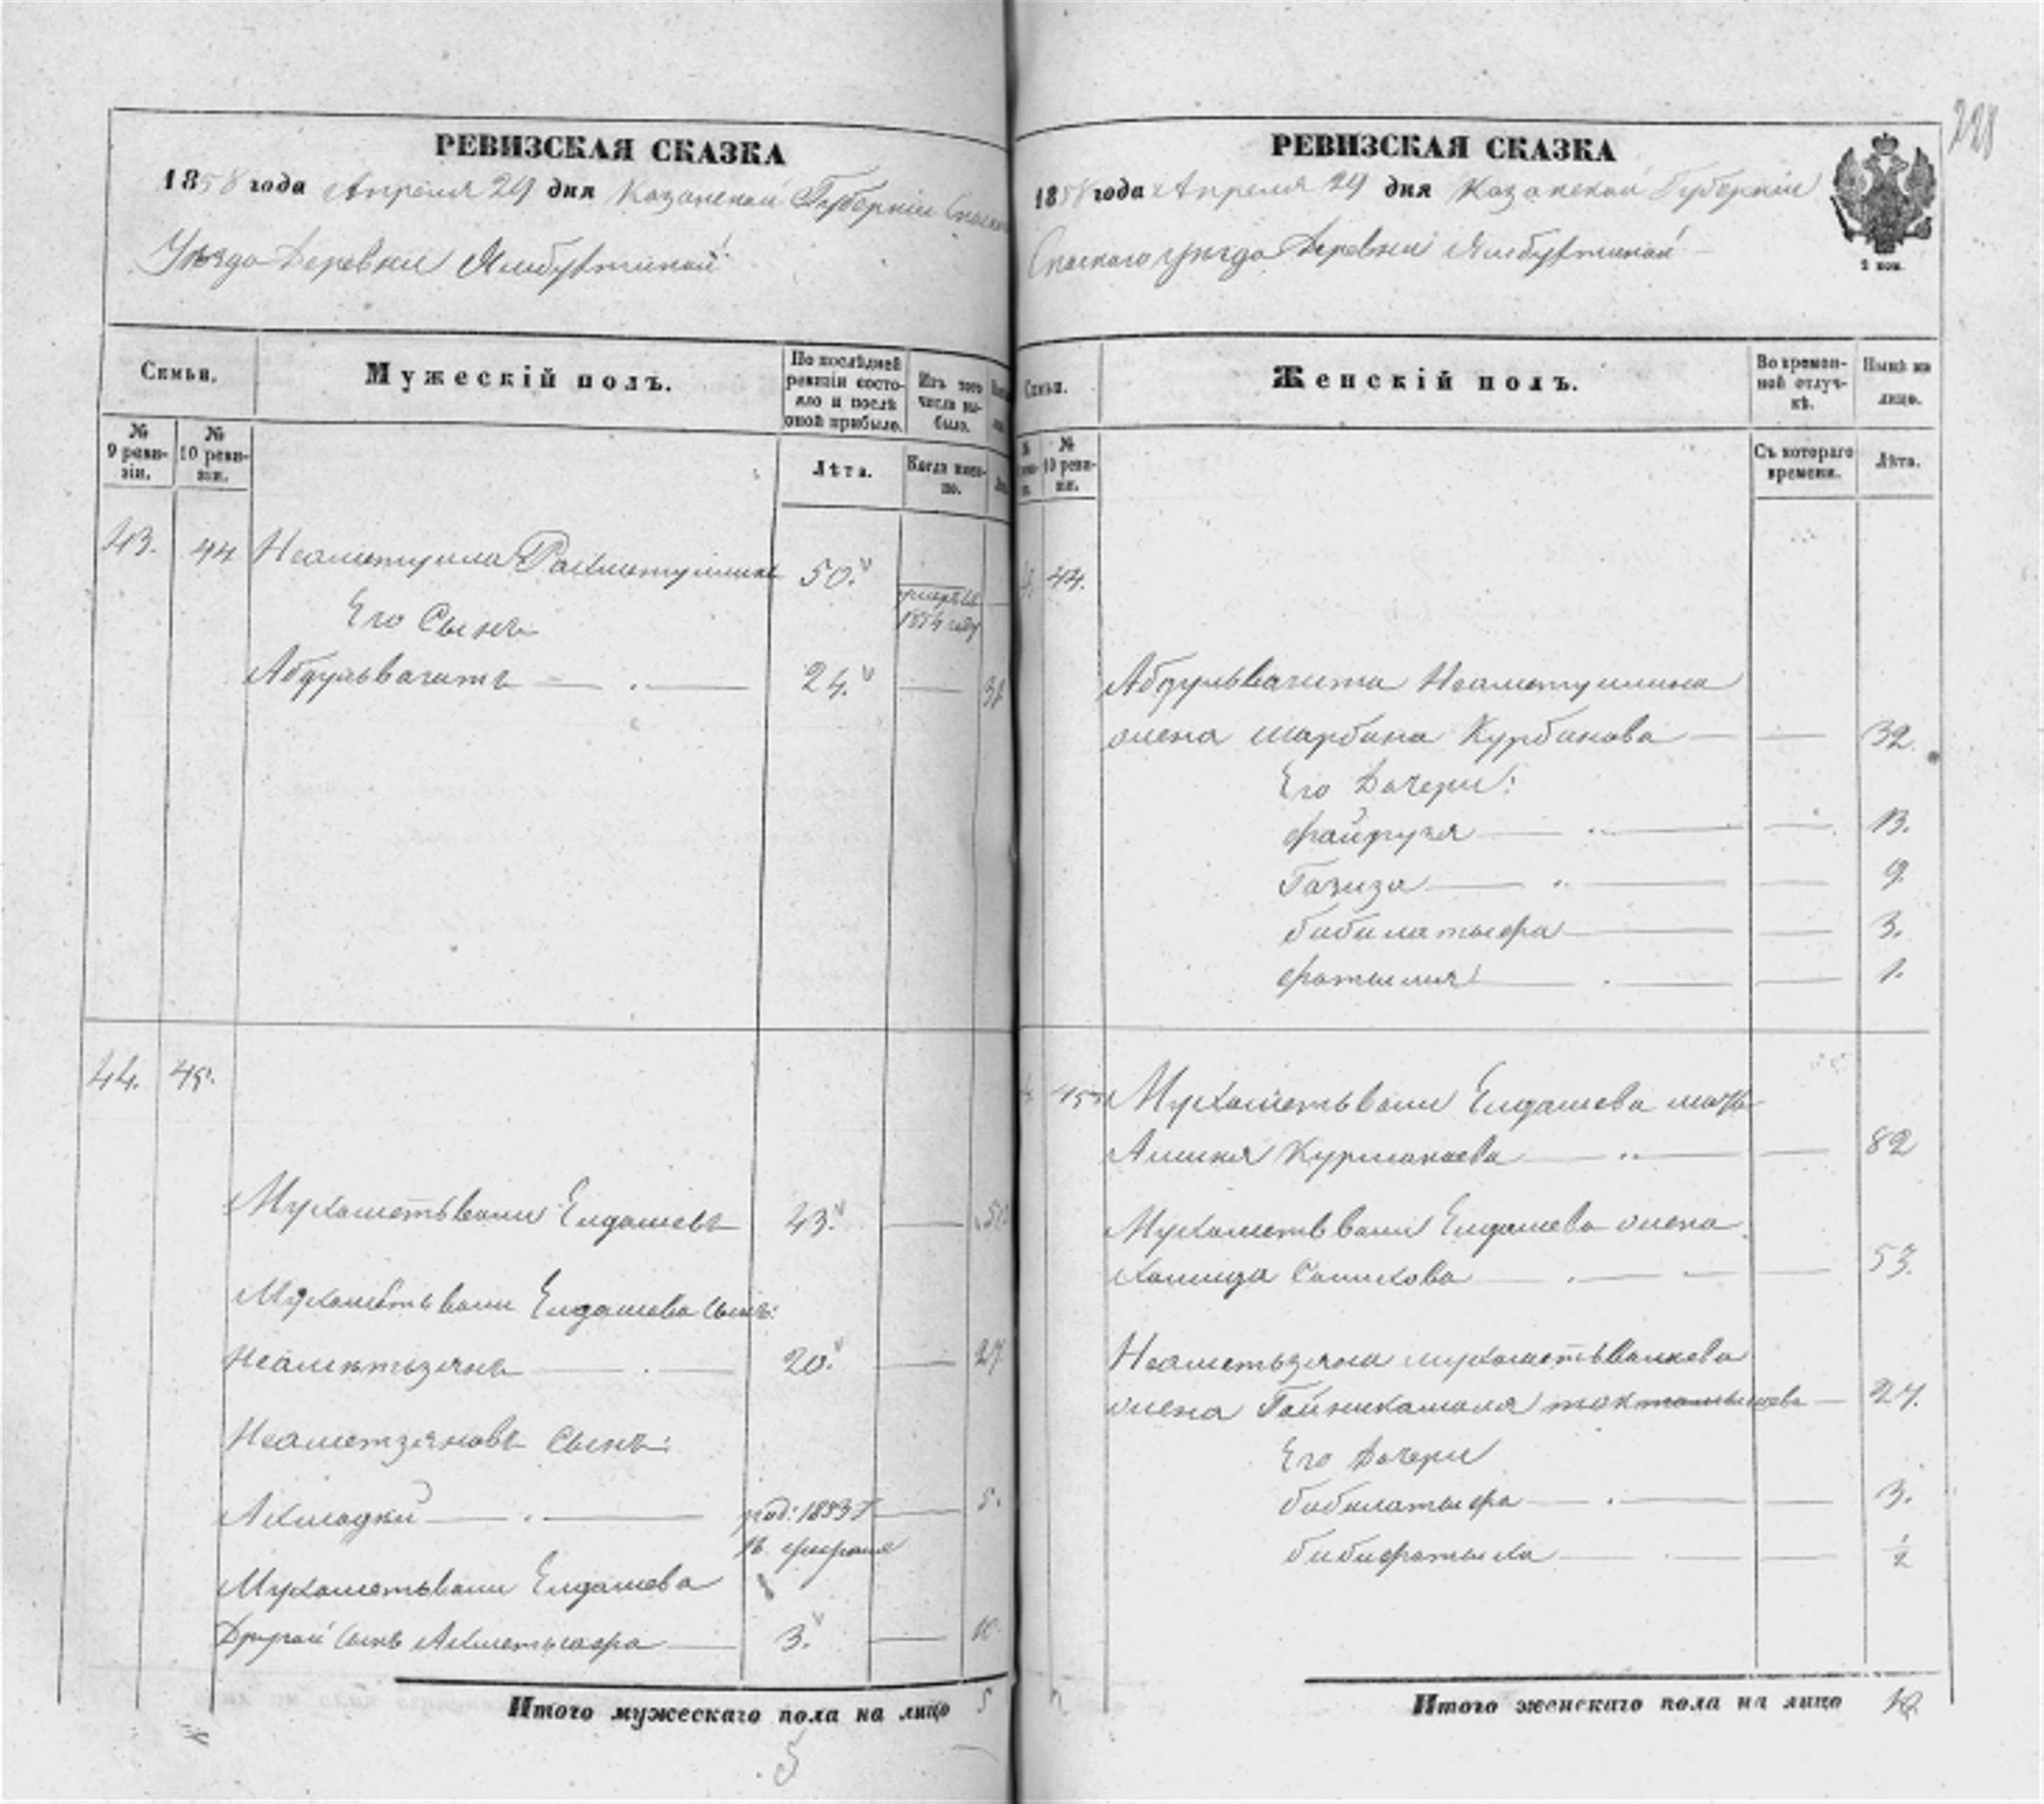 РЕВИЗСКАЯ СКАЗКА
1858 года Апреля 29 дня Казанской Губерніи
Уезда Деревни Ямбухтиной
Семьи.
Мужескій полъ.
По послѣдней ревизіи состояло и послѣ оной прибыло.
Изъ того числа выбыло.
№ 9 ревизіи.
№ 10 ревизіи.
Лѣта.
Когда именно.
43.
44
Неаметулла Рахметуллинъ
50.
умеръ въ 1854 году
Его Сынъ
Абдулвагитъ
24.
44.
45.
Мухаметьвали Елдашевъ
43.
Мухаметьвали Елдашева сынъ:
Неаметьзянъ
20.
27
Неаметзяновъ Сынъ:
Ахмадки
род: 1853 г
5.
Мухаметьвали Елдашева
Другой сынъ Ахметьсафа
3.
10.
Итого мужескаго пола на лицо 5
5
228
РЕВИЗСКАЯ СКАЗКА
1858 года Апреля 29 дня Казанской Губерніи
Спаскаго уезда Деревни Ямбухтиной
2 коп.
Семьи.
Женскій полъ.
Во временной отлучкѣ.
Нынѣ на лицо.
№ 10 ревизіи.
Съ котораго времени.
Лѣта.
44.
Абдулвагита Неаметуллина
жена Шарбана Курбанова
32.
Его Дочери:
Файруза
13.
Газиза
9.
Бибилатыфа
3.
Фатыма
1.
45.
Мухаметьвали Елдашева мать
Алмия Курмакаева
82
Мухаметьвали Елдашева жена
Хамида Салихова
53.
Неаметьзяна Мухаметьвалиева
жена Гайникамаля Токтамышева
27.
Его Дочери
Бибилатыфа
3.
Бибифатыха
1/2
Итого женскаго пола на лицо 10